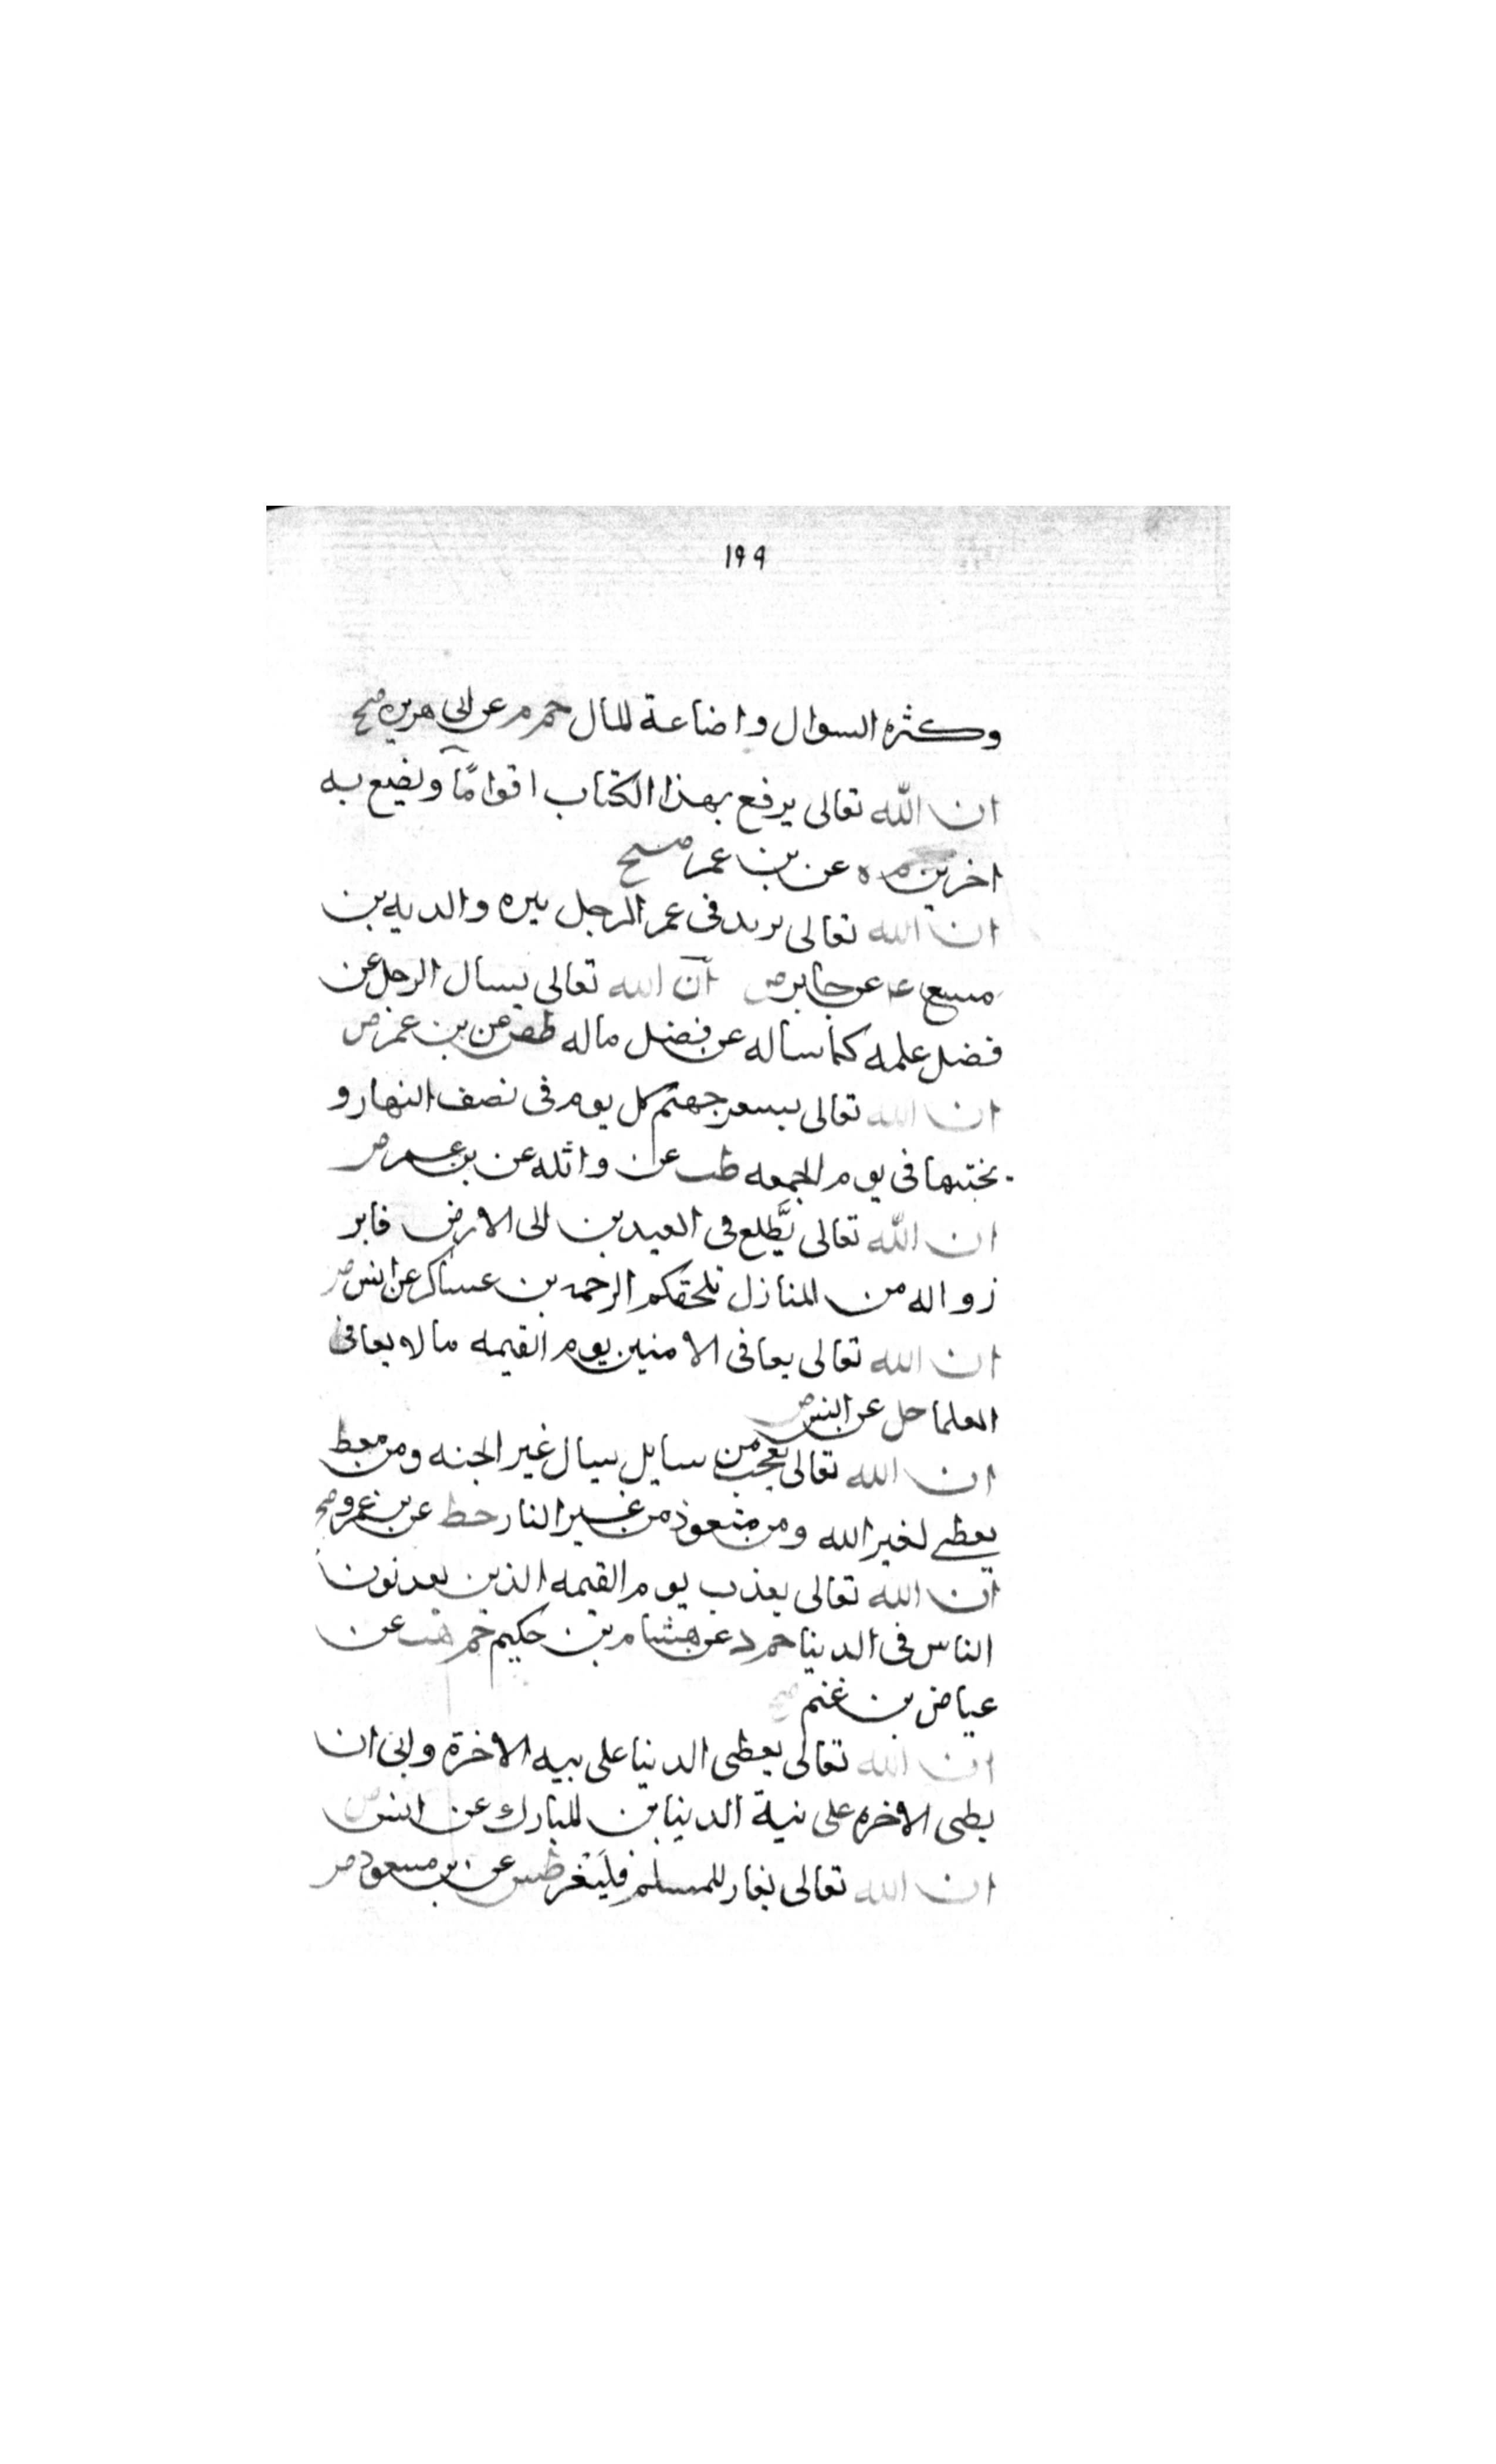 ١٩٩
وكثره السوال واضاعة المال حم م عن ابى هريره صح
ان الله تعالى يرفع بهذا الكتاب اقوامًا ويضيع به
اخرين م ه عن بن عمر صح
ان الله تعالى يريد فى عمر الرجل ببره والديه بن
منيع عد عن جابر ض ان الله تعالى يسال الرجل عن
فضل علمه كما ساله عن فضل ماله طص عن بن عمر ض
ان الله تعالى يسعر جهنم كل يوم فى نصف النهار و
يخبتها فى يوم الجمعه طب عن واثله عن بن عمر ض
ان الله تعالى يَّطلع فى العيدين الى الارض فابر
زوا له من المنازل تلحقكم الرحمه بن عساكر عن انس ض
ان الله تعالى يعافى الامنين يوم القيمه ما لا يعافى
العلما حل عن انس ض
ان الله تعالى يعجب من سايل يسال غير الجنه ومن معط
يعطى لغير الله ومن متعوذ من غير النار خط عن بن عمرو صح
ان الله تعالى يعذب يوم القيمه الذين يعدنون
الناس فى الدينا حم د عن هشام بن حكيم حم هب عن
عياض بن غنم صح
ان الله تعالى يعطى الدنيا على نيه الاخرة وابى ان
يطى الاخره على نية الدينا بن المبارك عن انس ض
ان الله تعالى يغار للمسلم فليَغر طس عن بن مسعود ض